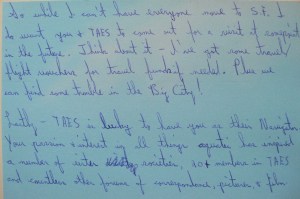 So while I can't have everyone come to S.F. I
do want you & TAES to come out for a visit if compat
in the future. Think about it - I've got some travel/
flight vouchers for travel funds if needed. Plus we
can find some trouble in the Big City!
Lastly - TAES is lucky to have you as their Navigator
Your passion & interest in all things aquatic has
a number of societies, members in TAES
and countless other forums of correspondence, pictures, & film